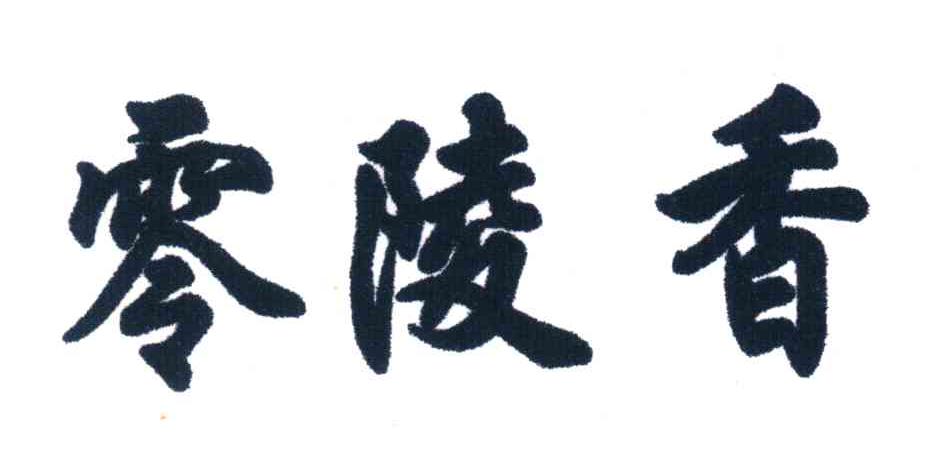 零陵香